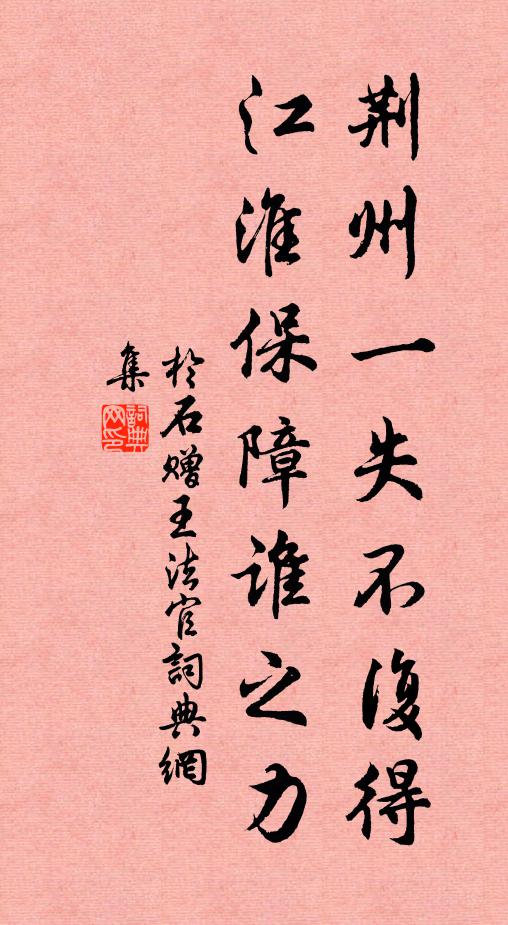 荆州一失不復得
江淮保障誰之力
於石贈王法官詞典網
集
詞典
网印